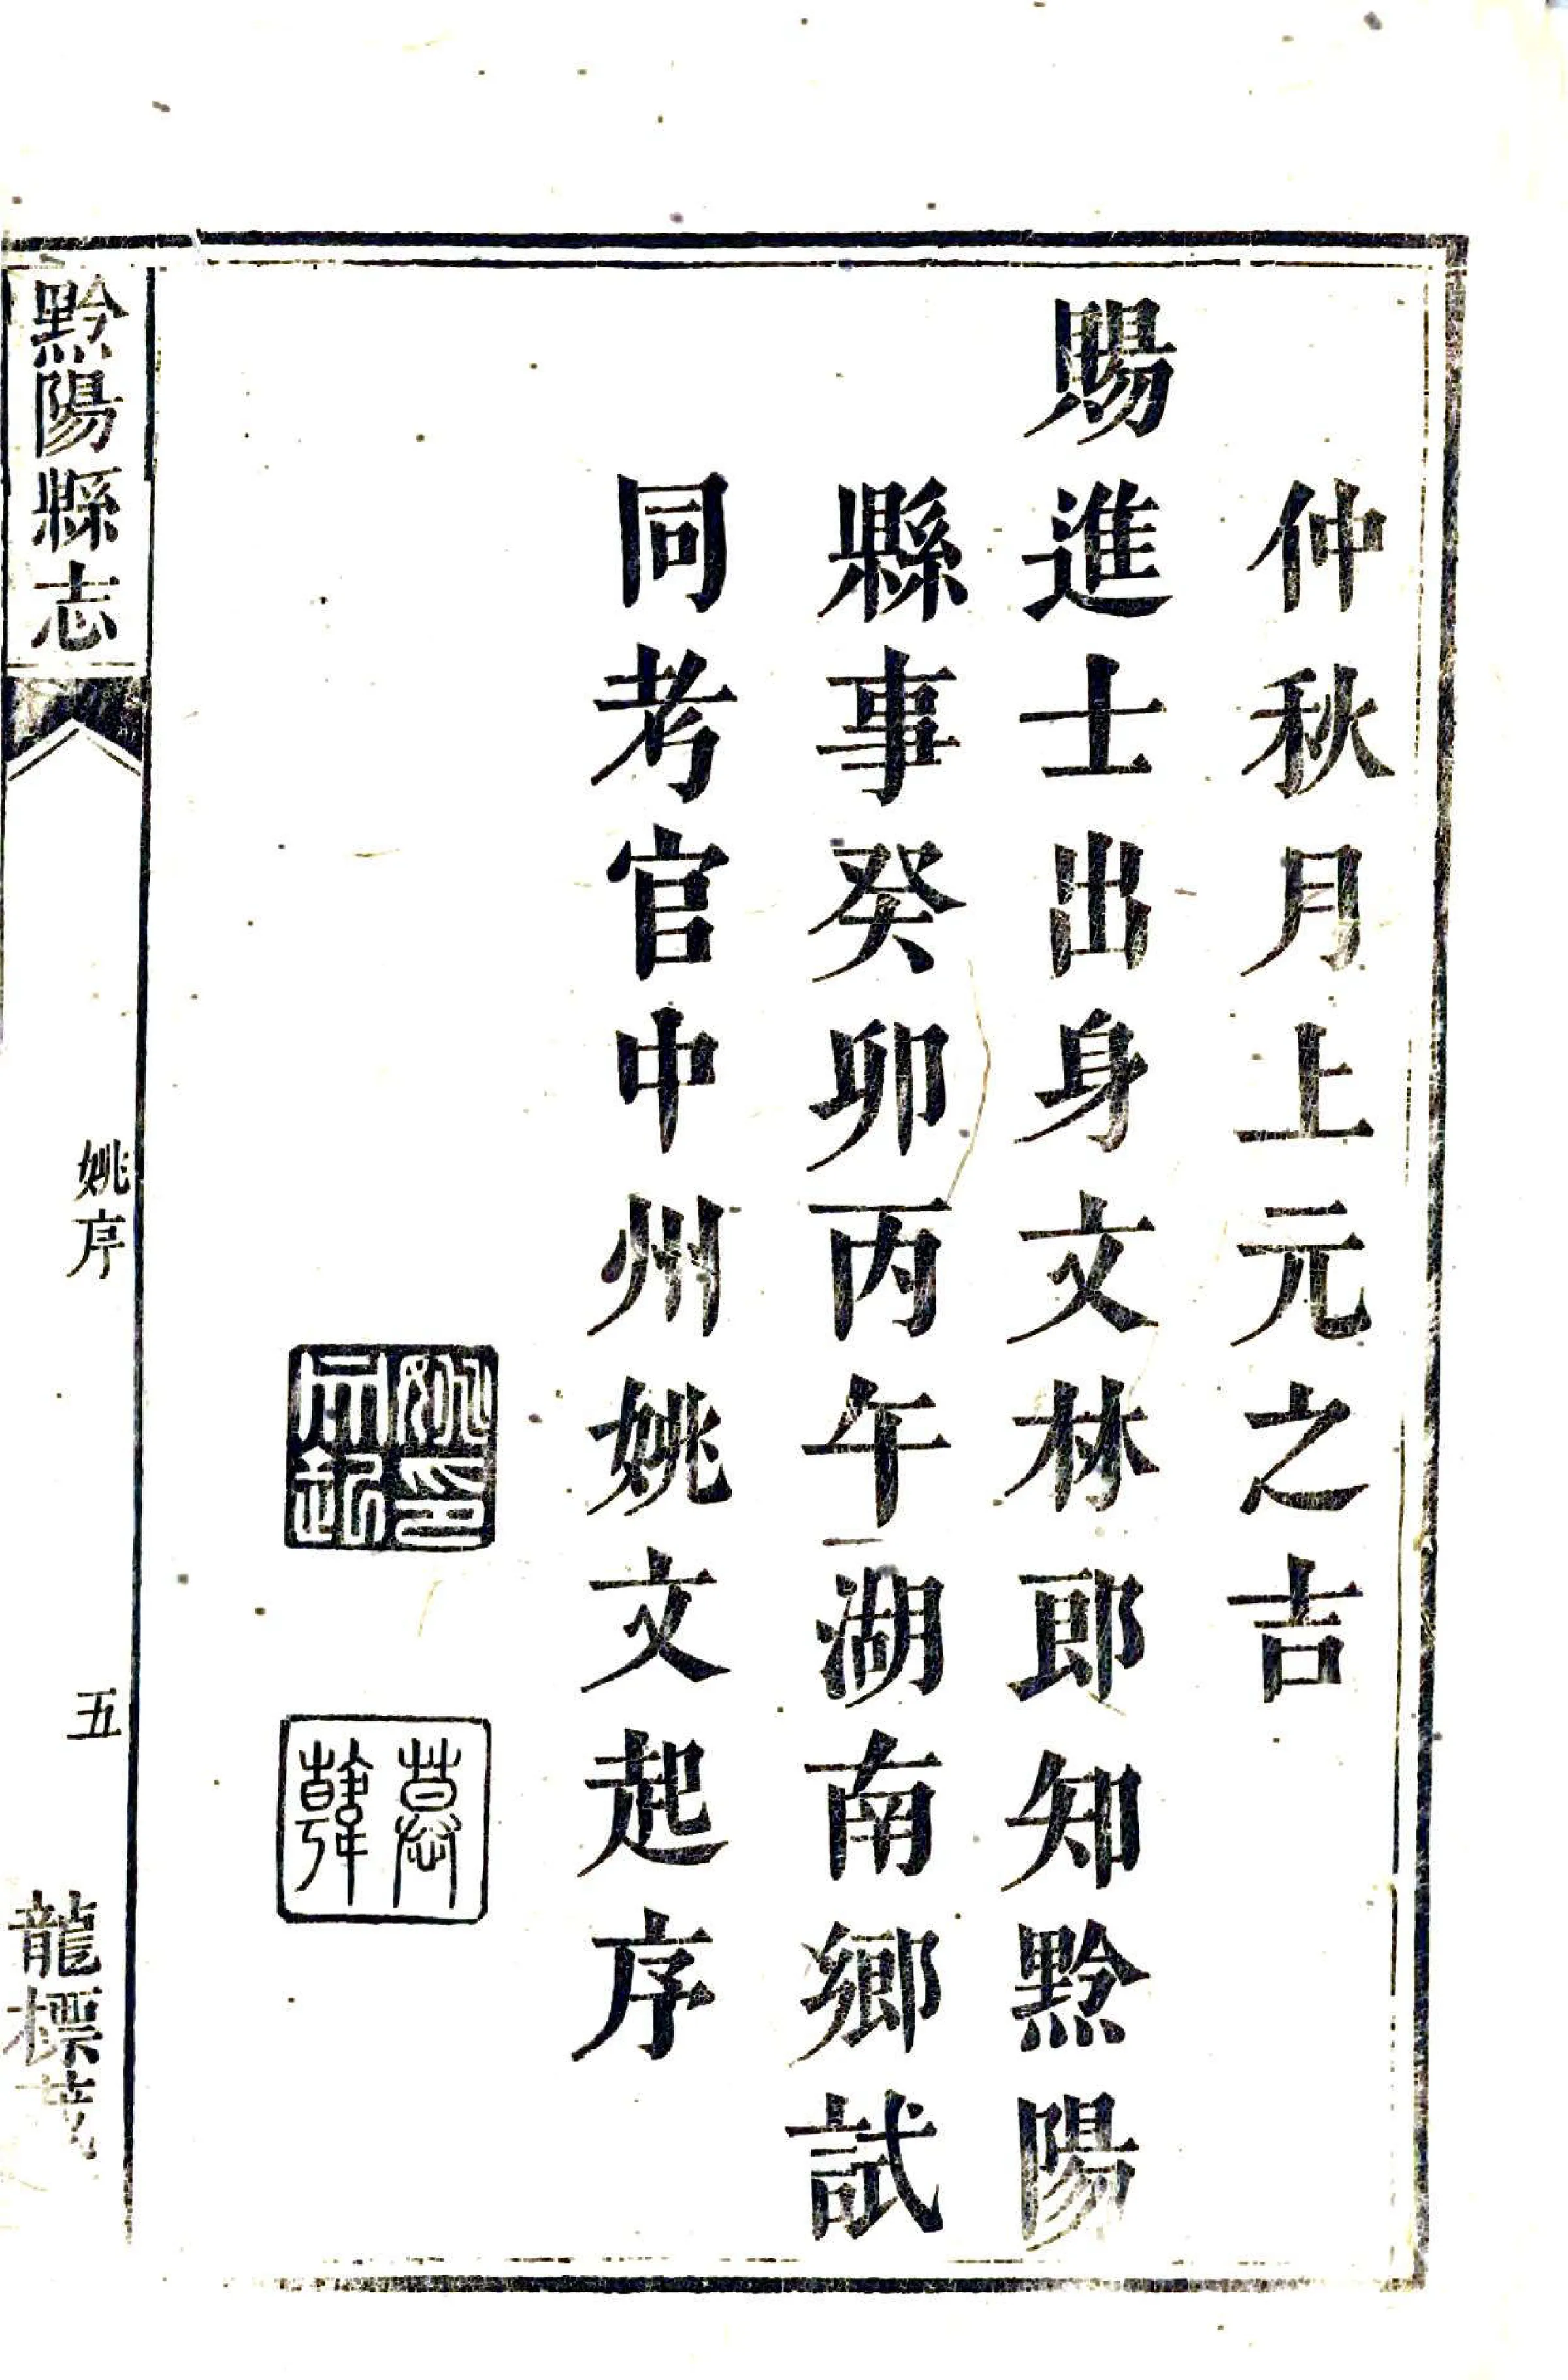 仲秋月上元之吉
賜進士出身文林郎知黔陽
縣事癸卯丙午湖南鄉試
同考官中州姚文起序
姚印文起
慕韓
黔陽縣志
姚序
五
龍標